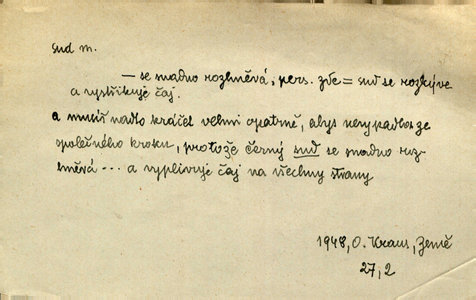 sud m.
— se snadno rozhněvá, pers. zde = suď se rozkýve
a vystřikuje čaj.
a musíš nadto kráčet velmi opatrně, abys nevypadl ze
společného kroku, protože černý suď se snadno roz-
hněvá --- a vyplivuje čaj na všechny strany
1948, O. Kraus, Země
27, 2